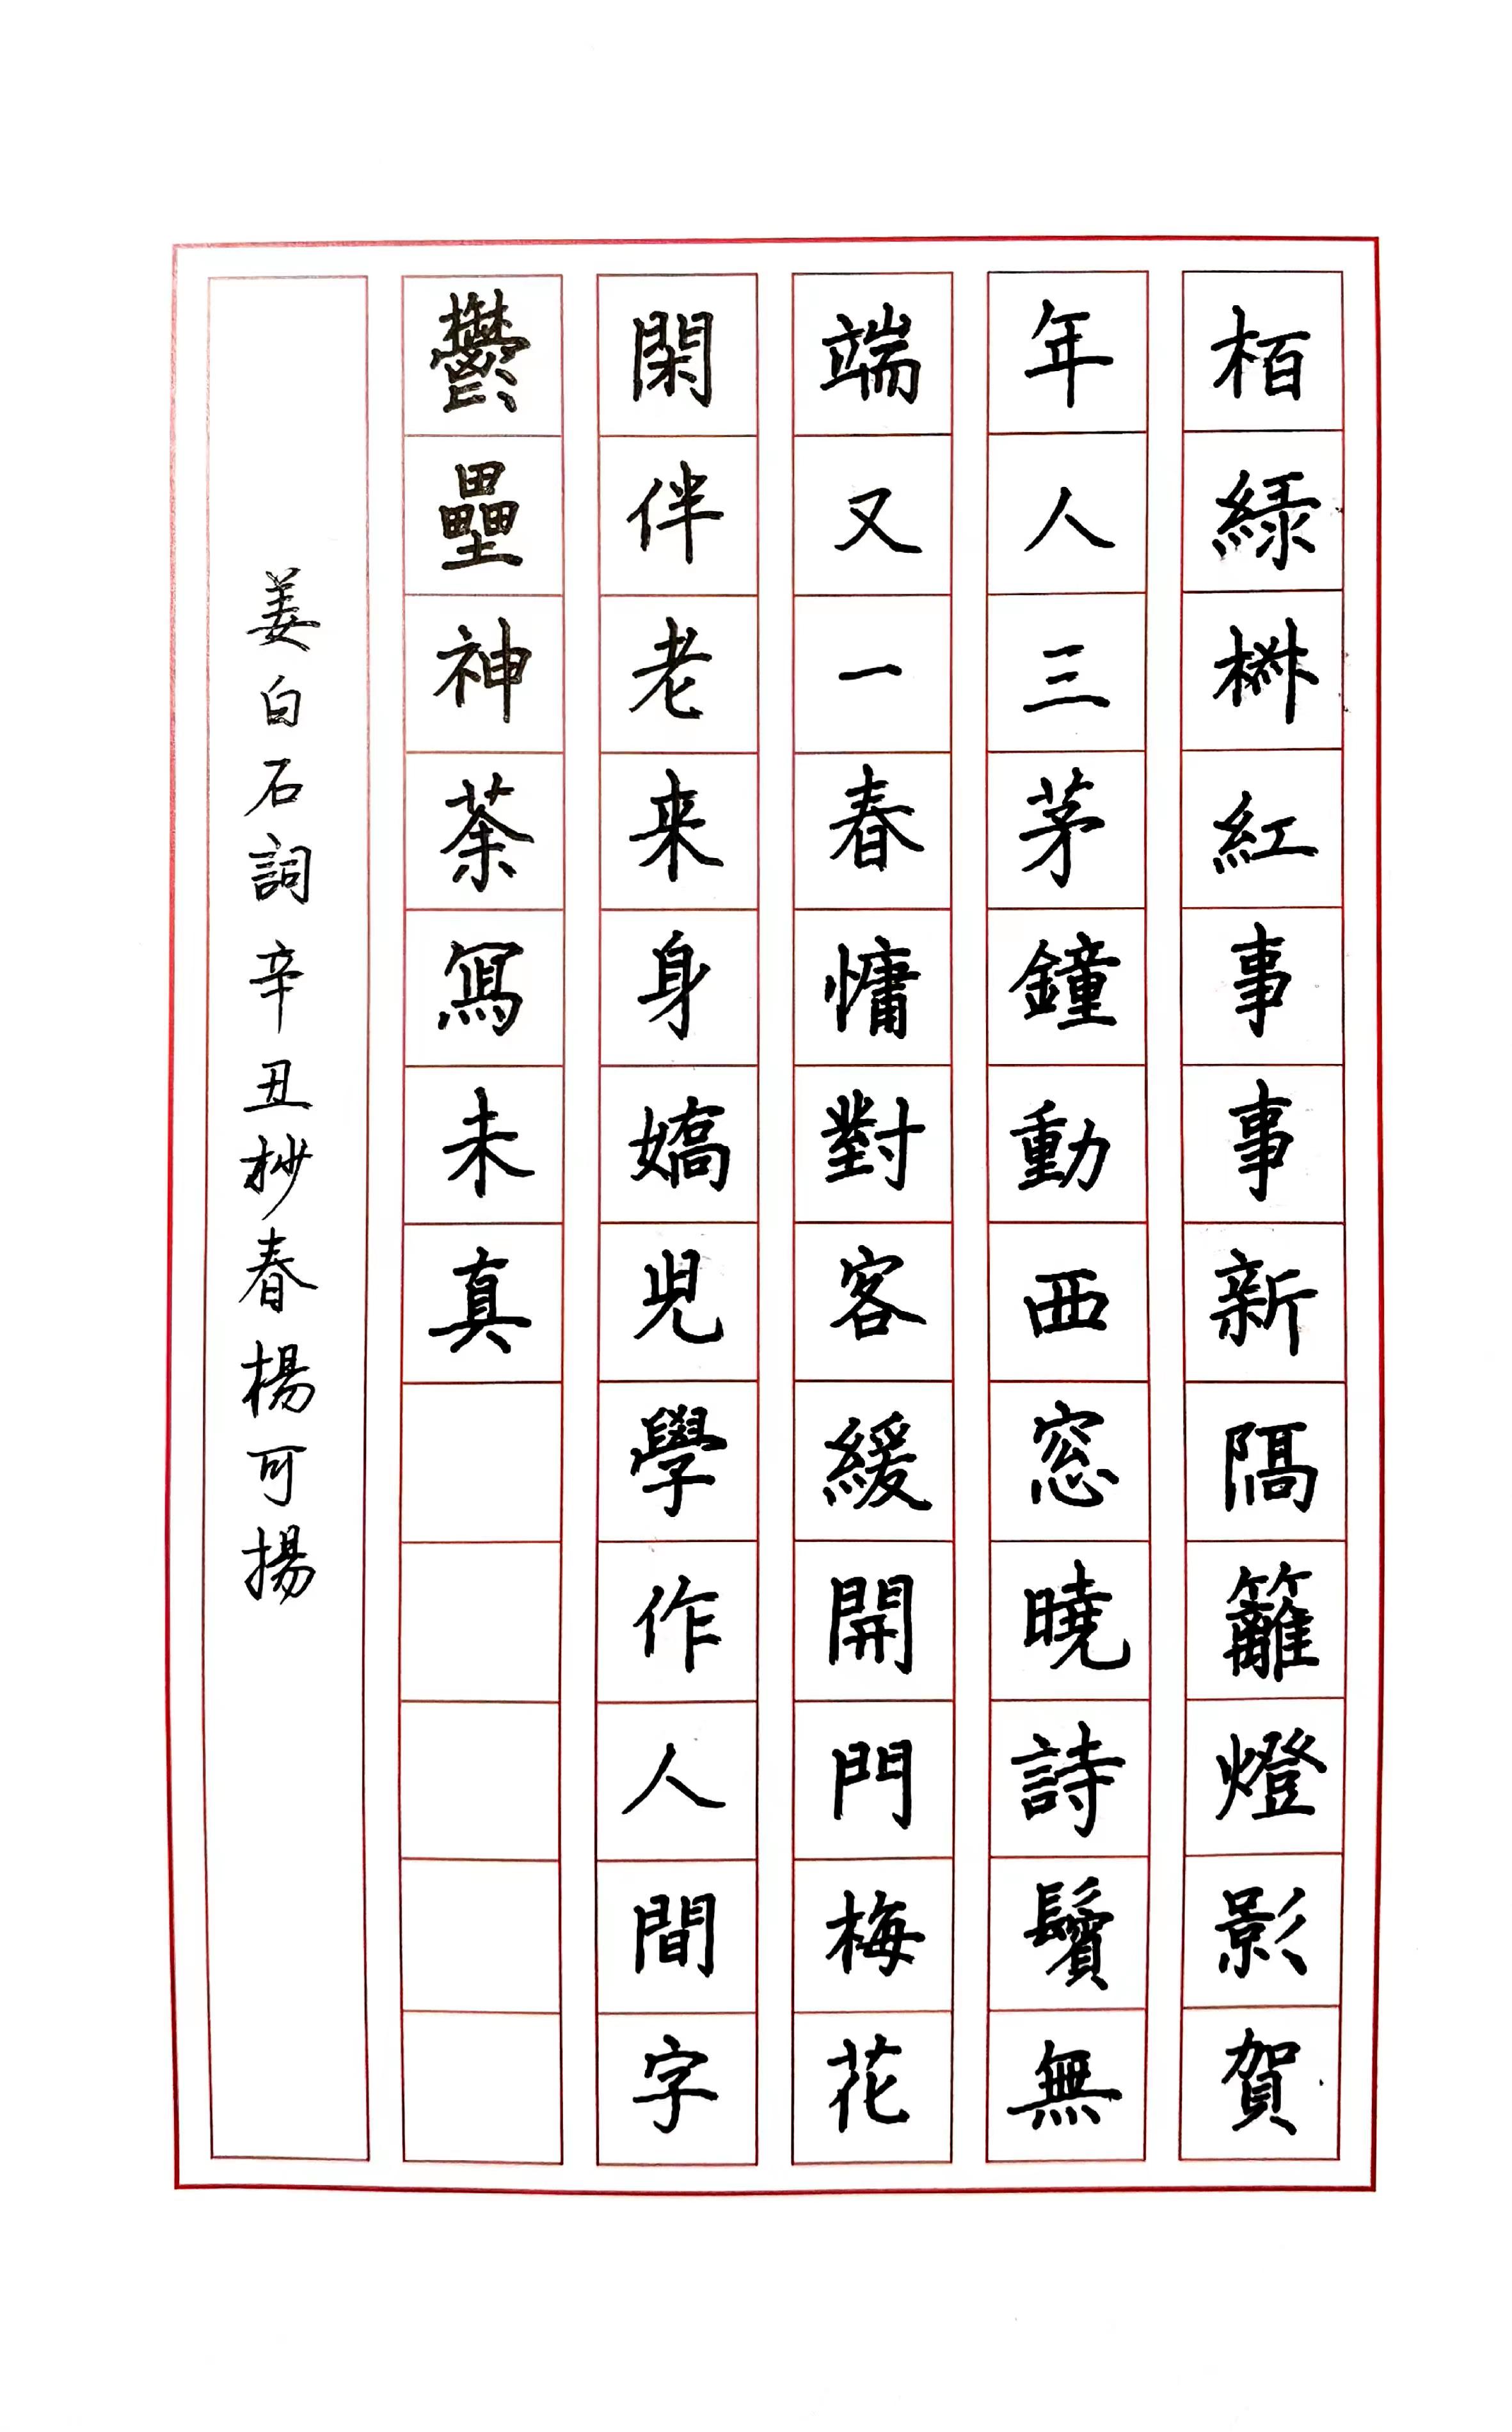 栢緑椒紅事事新隔籬燈影賀
年人三茅鐘動西窓曉詩鬢無
端又一春慵對客緩開門梅花
閑伴老来身嬌児學作人間字
鬱壘神荼寫未真
姜白石詞辛丑杪春楊可揚